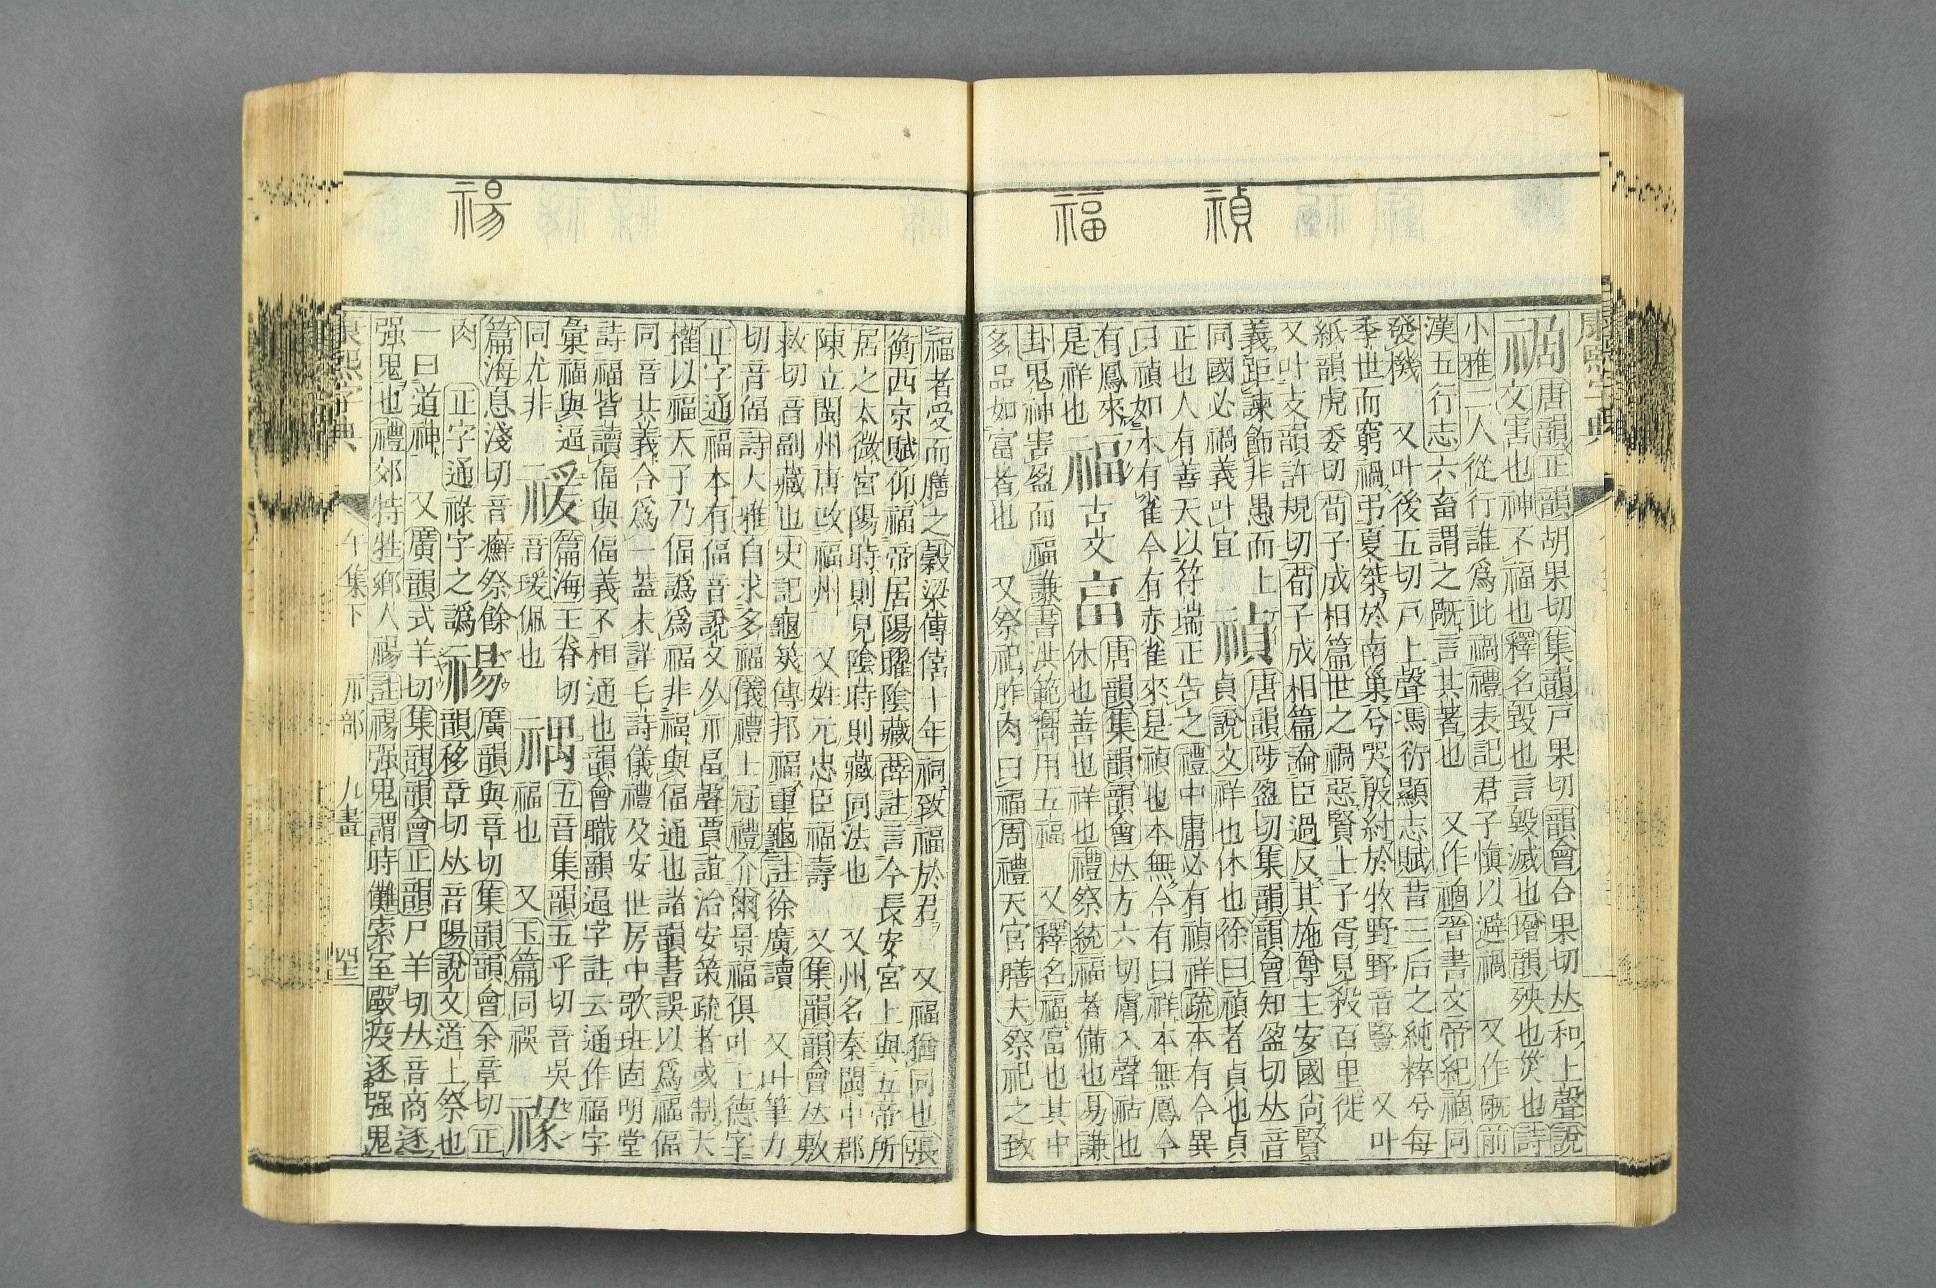 禎 福
康熙字典
禍 唐韻正韻胡果切集韻戸果切韻會合果切𠀤和上聲說
文害也神不福也釋名毀也言毀滅也增韻殃也災也詩
小雅二人從行誰爲此禍禮表記君子愼以避禍 又作旤前
漢五行志六畜謂之旤言其著也 又作𥚽晉書文帝紀𥚽同
發機 又叶後五切戸上聲馮衍顯志賦昔三后之純粹兮每
季世而窮禍弔夏桀於南巢兮哭殷紂於牧野野音豎 又叶
紙韻虎委切荀子成相篇世之禍惡賢士子胥見殺百里徙
又叶支韻許規切荀子成相篇論臣過反其施尊主安國尚賢
義距諫飾非愚而上
同國必禍義叶宜
禎 唐韻陟盈切集韻韻會知盈切𠀤音
貞說文祥也休也徐曰禎者貞也貞
正也人有善天以符瑞正告之禮中庸必有禎祥疏本有今異
曰禎如本有雀今有赤雀來是禎也本無今有曰祥本無鳳今
有鳳來
是祥也
福 古文畐 唐韻集韻韻會𠀤方六切膚入聲祜也
休也善也祥也禮祭統福者備也易謙
卦鬼神害盈而福謙書洪範嚮用五福 又釋名福富也其中
多品如富者也 又祭祀胙肉曰福周禮天官膳夫祭祀之致
禓
福者受而膳之穀梁傳僖十年祠致福於君 又福猶同也張
衡西京賦仰福帝居陽曜陰藏薛註言今長安宮上與五帝所
居之太微宮陽時則見陰時則藏同法也 又州名秦閩中郡
陳立閩州唐改福州 又姓元忠臣福壽 又集韻韻會𠀤敷
救切音副藏也史記龜筴傳邦福重龜註徐廣讀 又叶筆力
切音偪詩大雅自求多福儀禮士冠禮介爾景福俱叶上德字
正字通福本有偪音說文从示畐聲賈誼治安策疏者或制大
權以福天子乃偪譌爲福非福與偪通也諸韻書誤以爲福偪
同音共義今爲一蓋未詳毛詩儀禮及安世房中歌班固明堂
詩福皆讀偪與偪義不相通也韻會職韻逼字註云通作福字
彙福與逼
同尤非
禐 篇海王眷切
音瑗佩也
禑 五音集韻五乎切音吳
福也 又玉篇同䄎
禒
篇海息淺切音癬祭餘
肉 正字通祿字之譌
禓 廣韻與章切集韻韻會余章切正
韻移章切𠀤音陽說文道上祭也
一曰道神 又廣韻式羊切集韻韻會正韻尸羊切𠀤音商逐
强鬼也禮郊特牲鄉人禓註禓强鬼謂時儺索室毆疫逐强鬼
康熙字典 午集下 示部 九畫 四三